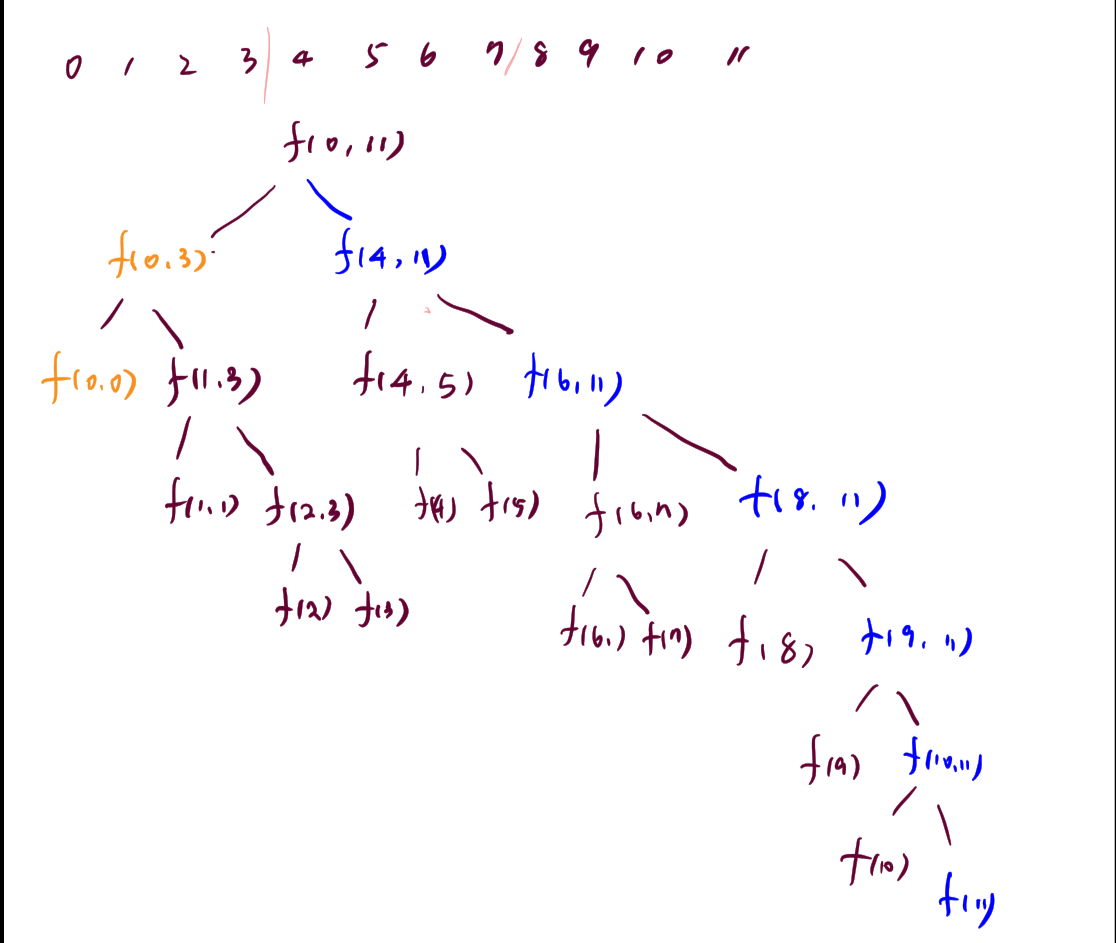 0 1 2 3 4 5 6 7 8 9 10 11
f(0, 11)
f(0.3) f(4, 11)
f(0.0) f(1.3) f(4.5) f(6, 11)
f(1,1) f(2.3) f(4) f(5) f(6,7) f(8. 11)
f(2) f(3) f(6.) f(7) f(8) f(9. 11)
f(9) f(10,11)
f(10)
f(11)